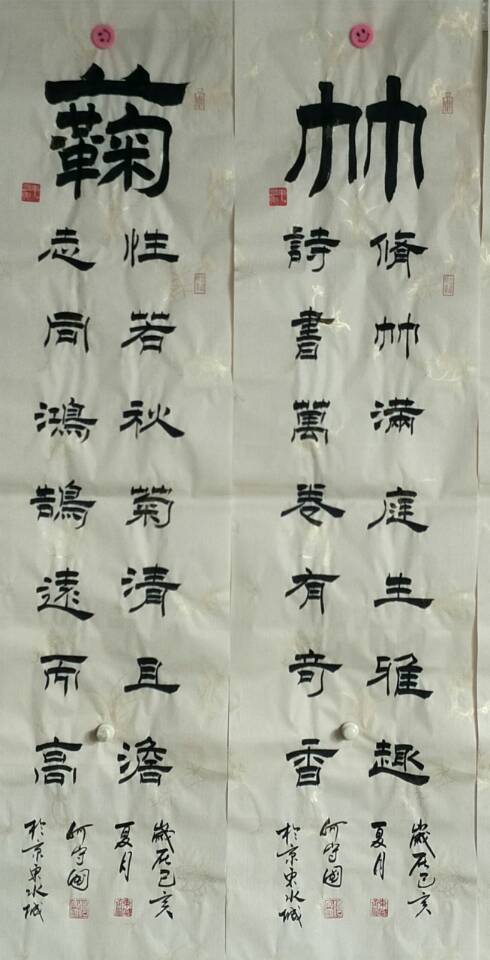 竹
脩竹滿庭生雅趣
詩書萬卷有奇香
歲在己亥
夏月
何守國
於京東水城
蘜
性若秋菊清且澹
志同鴻鵠遠而高
歲在己亥
夏月
何守國
於京東水城